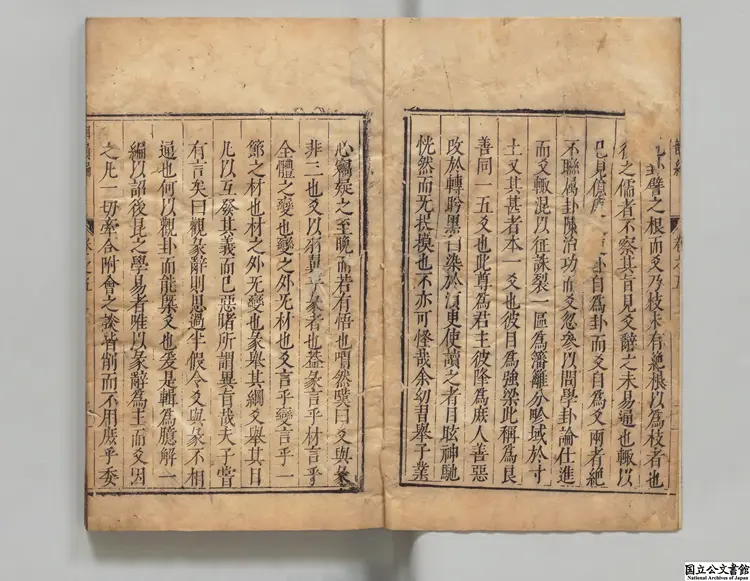 卦譬之根而爻乃枝未有絶根以為枝者也
之儒者不察其旨見爻辭之未易通也輙以
己見傅卦自為卦而爻自為爻兩者絶
不聯属卦陳治功而爻忽叅以問學卦論仕進
而又輙混以征誅裂一區為籓籬分畛域於寸
土又其甚者本一爻也彼目為強梁此稱為良
善同一五爻也此尊為君主彼降為庶人善惡
攺於轉盻黒白染於更使讀之者目眩神馳
恍然而无捉摸也不亦可怪哉余幼習舉子業
心竊疑之至晚而若有悟也喟然嘆曰爻與彖
非二也爻以羽翼乎彖者也葢彖言乎材言乎
全體之變也變之外无材也爻言乎變言乎一
節之材也材之外无變也彖舉其綱爻舉其目
凡以互發其義而已惡睹所謂異旨哉夫子嘗
有言矣曰觀彖辭則思過半假令爻與彖不相
通也何以觀卦而能槩爻也爰是輯為臆解一
編以詔後昆之學易者唯以彖辭為主而爻因
之凡一切牽合附會之談皆削而不用庶乎委
卷之五
国立公文書館
National Archives of Japan